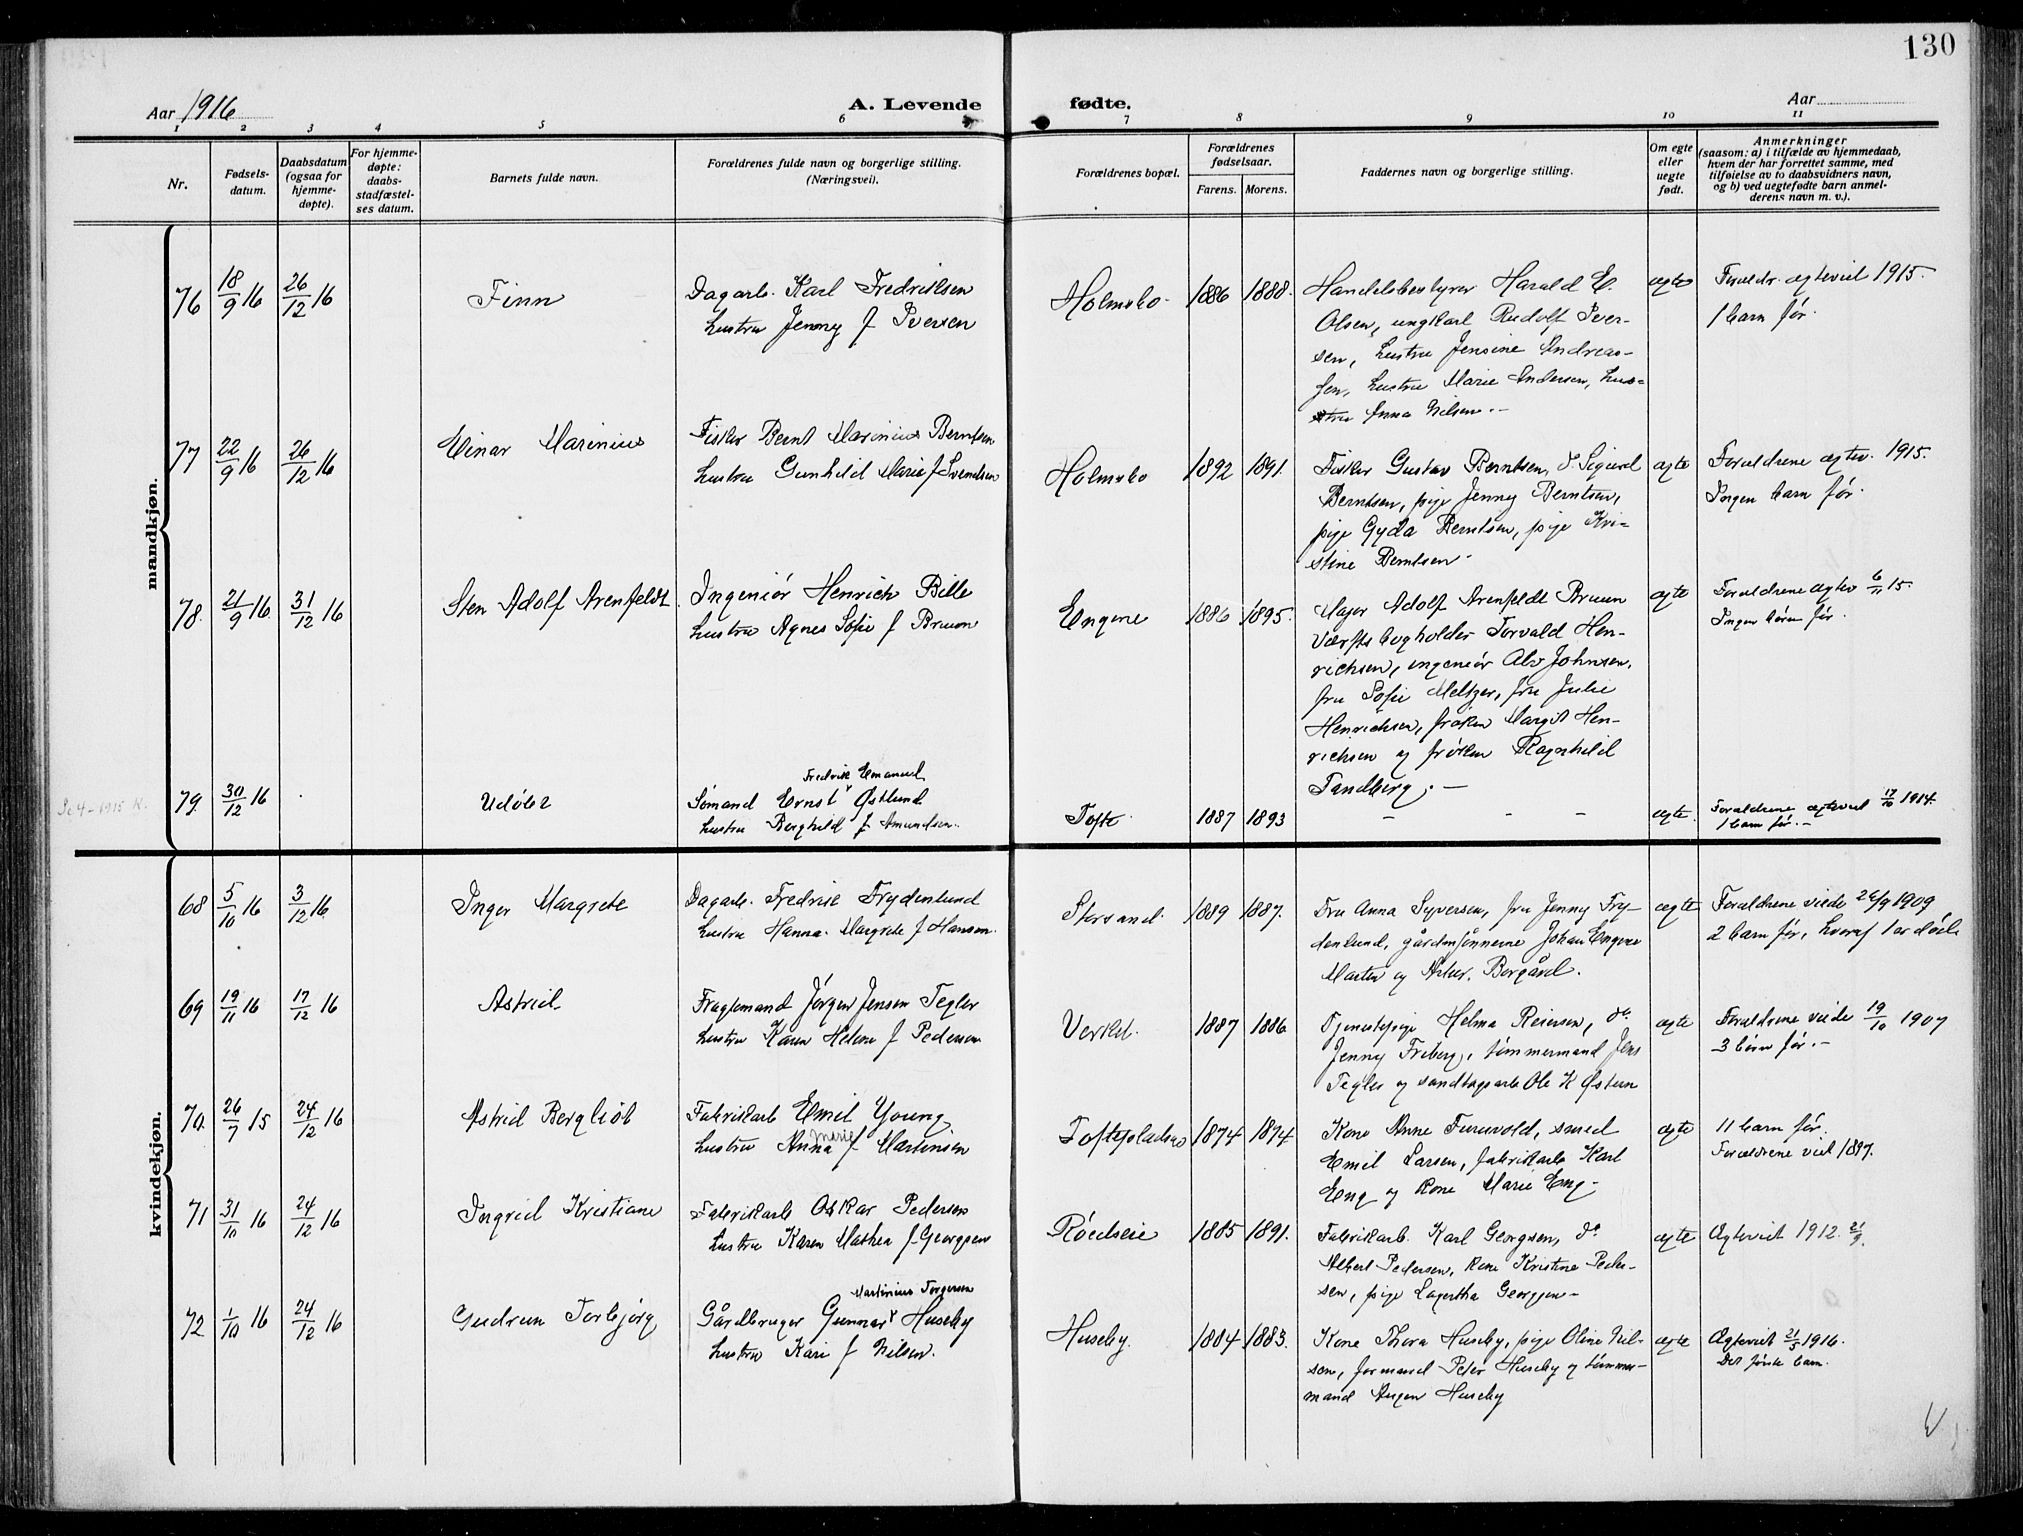 130
Aar 1916
A. Levende fødte.
Aar
1 2 3 4 5 6 7 8 9 10 11
Nr.
Fødsels-
datum.
Daabsdatum
(ogsaa for
hjemme-
døpte).
For hjemme-
døpte:
daabs-
stadfæstel-
ses datum.
Barnets fulde navn.
Forældrenes fulde navn og borgerlige stilling.
(Næringsvei).
Forældrenes bopæl.
Forældrenes
fødselsaar.
Farens. Morens.
Faddernes navn og borgerlige stilling.
Om egte
eller
uegte
født.
Anmerkninger
(saasom: a) i tilfælde av hjemmedaab,
hvem der har forrettet samme, med
tilføielse av to daabsvidners navn,
og b) ved uegtefødte barn anmel-
derens navn m. v.).
mandkjøn.
76 18/9 16 26/12 16 Finn
Dagarb. Karl Fredriksen
hustru Jenny f Iversen
Holmsbo. 1886 1888.
Handelsbestyrer Harald E.
Olsen, ungkarl Rudolf Iver-
sen, hustru Jensine Andreas-
sen, hustru Marie Andersen, hus-
tru Anna Nilsen.-
egte
Foreldr. egteviet 1915.
1 barn før.
77 22/9 16 26/12 16 Einar Marinius
Fisker Bernt Marinius Berntsen
hustru Gunhild Marie f Svendsen
Holmsbo 1892 1891.
Fisker Gustav Berntsen, do Sigurd
Berntsen, pige Jenny Berntsen,
pige Gyda Berntsen, pige Kri-
stine Berntsen.
egte
Forældrene egtev. 1915.
Ingen barn før.
78. 21/9 16. 31/12 16 Sten Adolf Arenfeldt.
Ingeniør Henrich Bille
hustru Agnes Sofie f Bruun
Engene 1886 1895.
Major Adolf Arenfeldt Bruun
Værftsbogholder Torvald Hen-
richsen, ingeniør Alv Johnsen,
fru Sofie Meltzer, fru Julie
Henrichsen, frøken Margit Hen-
richsen og frøken Ragnhild
Tandberg. -
egte
Forældrene egtev 6/11 15.
Ingen børn før.
Se 4-1915 K.
79. 30/12 16 Udøbt
Fredrik Emanuel
Sømand Ernst Østlund
hustru Borghild f Amundsen.
Tofte 1887 1893 - - - egte.
Forældrene egteviet 17/10 1914.
1 barn før. -
kvindekjøn.
68 5/10 16 3/12 16. Inger Margrete
Dagarb. Fredrik Frydenlund
hustru Hanna Margrete f Hansen.
Storsand. 1889 1887.
Fru Anna Syversen, fru Jenny Fry-
denlund, gårdssønnerne Johan Engene
Marten og Artur Borgård.
egte
Forældrene viede 26/9 1909
2 barn før, hvoraf 1 er død.
69 19/11 16 17/12 16 Astrid
Fragtemand Jørgen Jensen Tegler
hustru Karen Helene f Pedersen
Verket. 1887 1886
Tjenestepige Helma Reiersen, do.
Jenny Friberg, tømmermand Jens
Tegler og sandtagsarb Ole K Østern
egte
Forældrene viede 19/10 1907
3 børn før. -
70. 26/7 15 24/12 16 Astrid Bergliot
Fabrikarb Emil Young
hustru Anna Marie f Martinsen
Tofteplads 1874 1874
Kone Anne Furuvold, smed
Emil Larsen, fabrikarb Karl
Eng og kone Marie Eng-
egte
11 barn før.
Forældrene viet 1897.
71 31/10 16 24/12 16 Ingrid Kristiane
Fabrikarb Oskar Pedersen
hustru Karen Mathea f. Georgsen
Rødseie 1885 1891.
Fabrikarb. Karl Georgsen, do
Albert Pedersen, kone Kristine Peder-
sen, pige Lagertha Georgsen-
egte
Egteviet 1912. 21/9.
72 1/10 16 24/12 16 Gudrun Torbjørg
Martinius Torgersen
Gårdbruger Gunnar Huseby
hustru Kari f Nilsen.
Huseby. 1884 1883.
Kone Thora Huseby, pige Oline Niel-
sen, formand Peter Huseby og tømmer-
mand Huseby
egte
Egteviet 21/5 1916.
Det første barn.